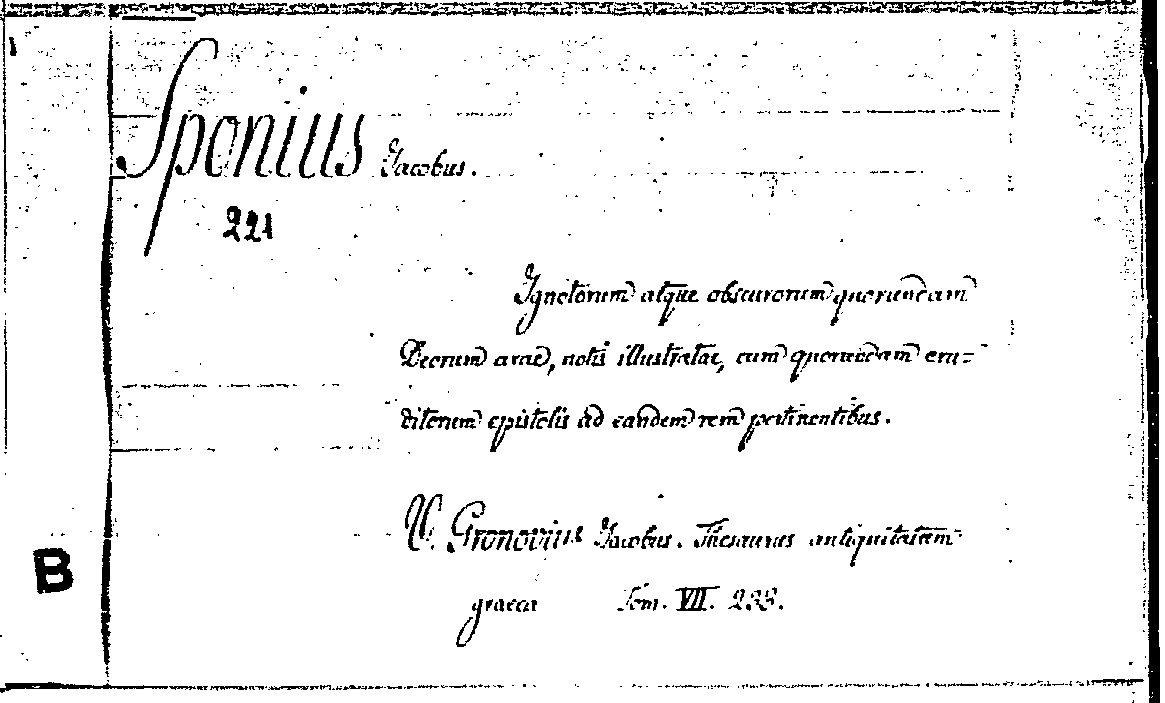 Sponius Jacobus.
221
Ignotorum atque obscurorum quorundam
Deorum arae, notis illustratae, cum quorundam eru=
ditorum epistolis ad eandem rem pertinentibus.
V. Gronovius Jacobus. Thesaurus antiquitatum
graecar Tom. VII. 233.
B